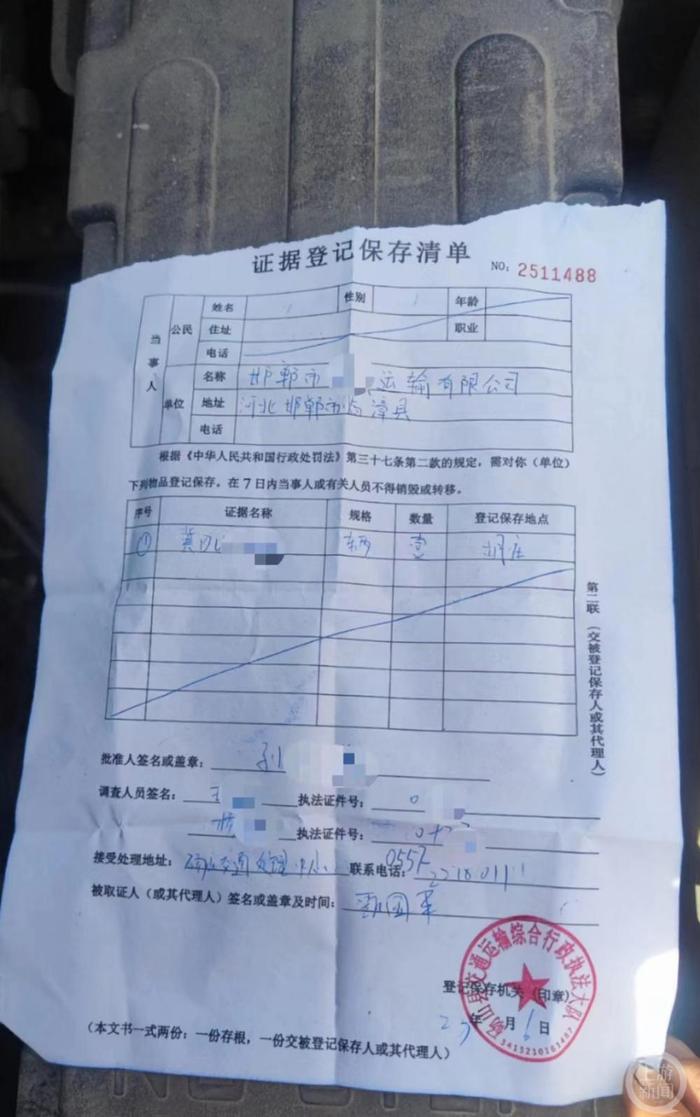 证据登记保存清单
NO: 2511488
当事人
公民 姓名 性别 年龄
住址 职业
电话
单位 名称 邯郸市 运输有限公司
地址 河北邯郸市临漳县
电话
根据《中华人民共和国行政处罚法》第三十七条第二款的规定，需对你（单位）
下列物品登记保存。在7日内当事人或有关人员不得销毁或转移。
序号 证据名称 规格 数量 登记保存地点
① 冀 辆 壹
第二联（交被登记保存人或其代理人）
批准人签名或盖章：
调查人员签名：王 执法证件号：0
执法证件号：
接受处理地址：砀山交通处理中心 联系电话：0557
被取证人（或其代理人）签名或盖章及时间：
砀山县交通运输综合行政执法大队
登记保存机关（印章）
年 月6日
（本文书一式两份：一份存根，一份交被登记保存人或其代理人）
上游新闻